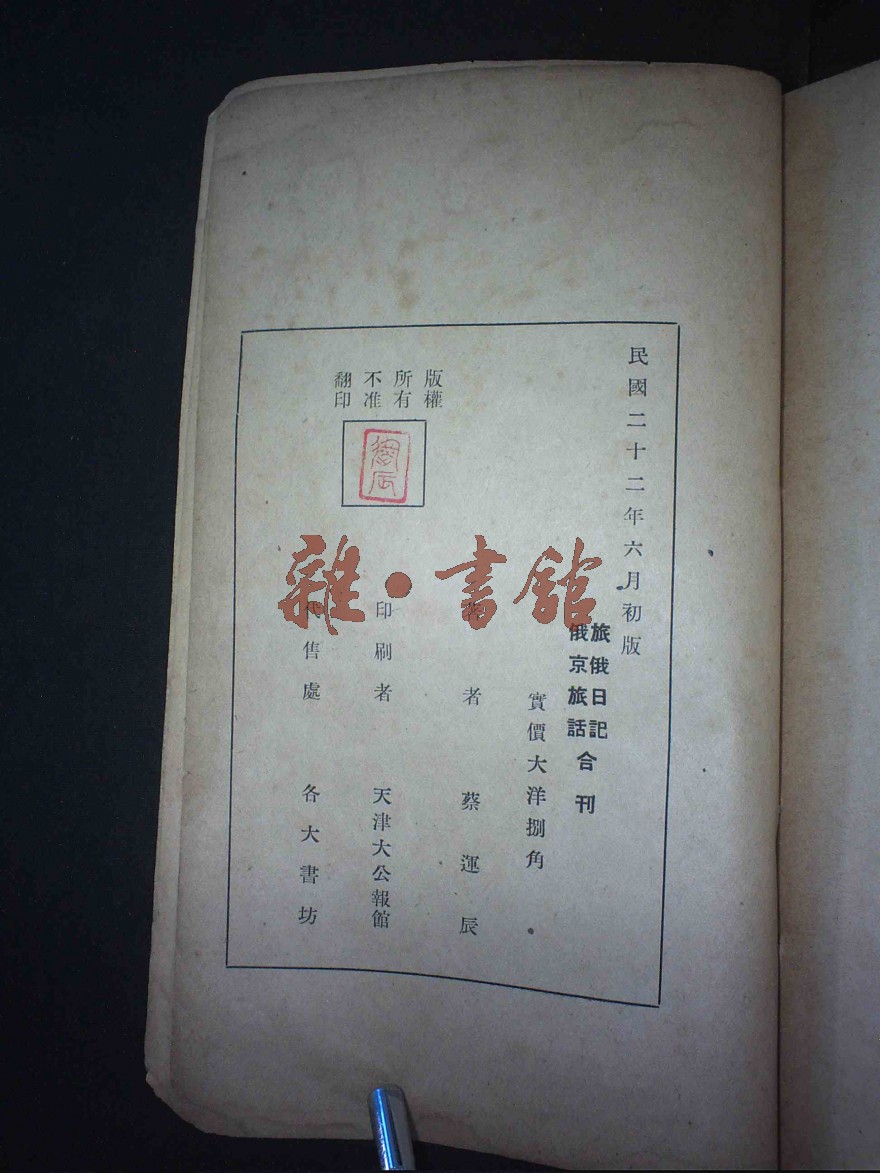 民國二十二年六月初版
旅俄日記
俄京旅話
合刊
實價大洋捌角
著者 蔡運辰
印刷者 天津大公報館
代售處 各大書坊
版權
所有
不准
翻印
雜·書館